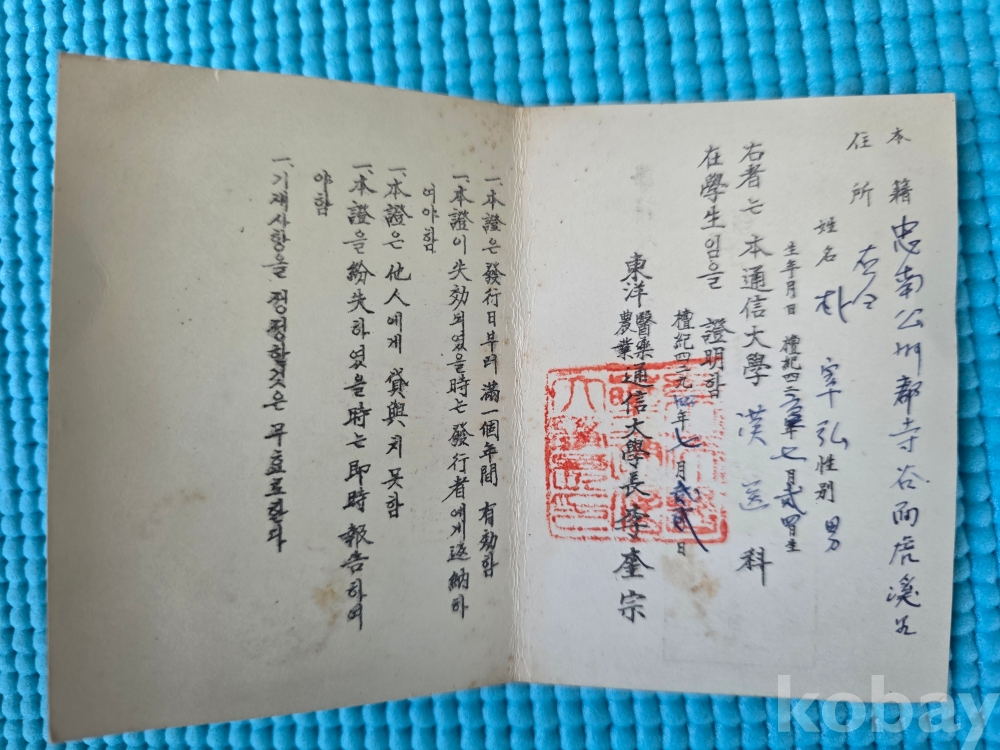 本籍 忠南公州郡寺谷面虎溪里
住所 右仝
姓名 朴 宰弘 性別 男
生年月日 檀紀四二 年七月 生
右者는 本通信大學 漢医科
在學生임을 證明함
檀紀四二九四年七月 日
東洋醫藥農業通信大學長 李奎宗
一、本證은 發行日부터 滿一個年間 有効함
一、本證이 失効되였을時는 發行者에게返納하
여야함
一、本證은 他人에게 貸與치못함
一、本證을 紛失하였을時는 即時 報告하여
야함
一、기재사항을 정정한것은 무효로한다
kobay